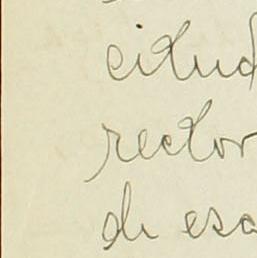 citud
rector
de esc